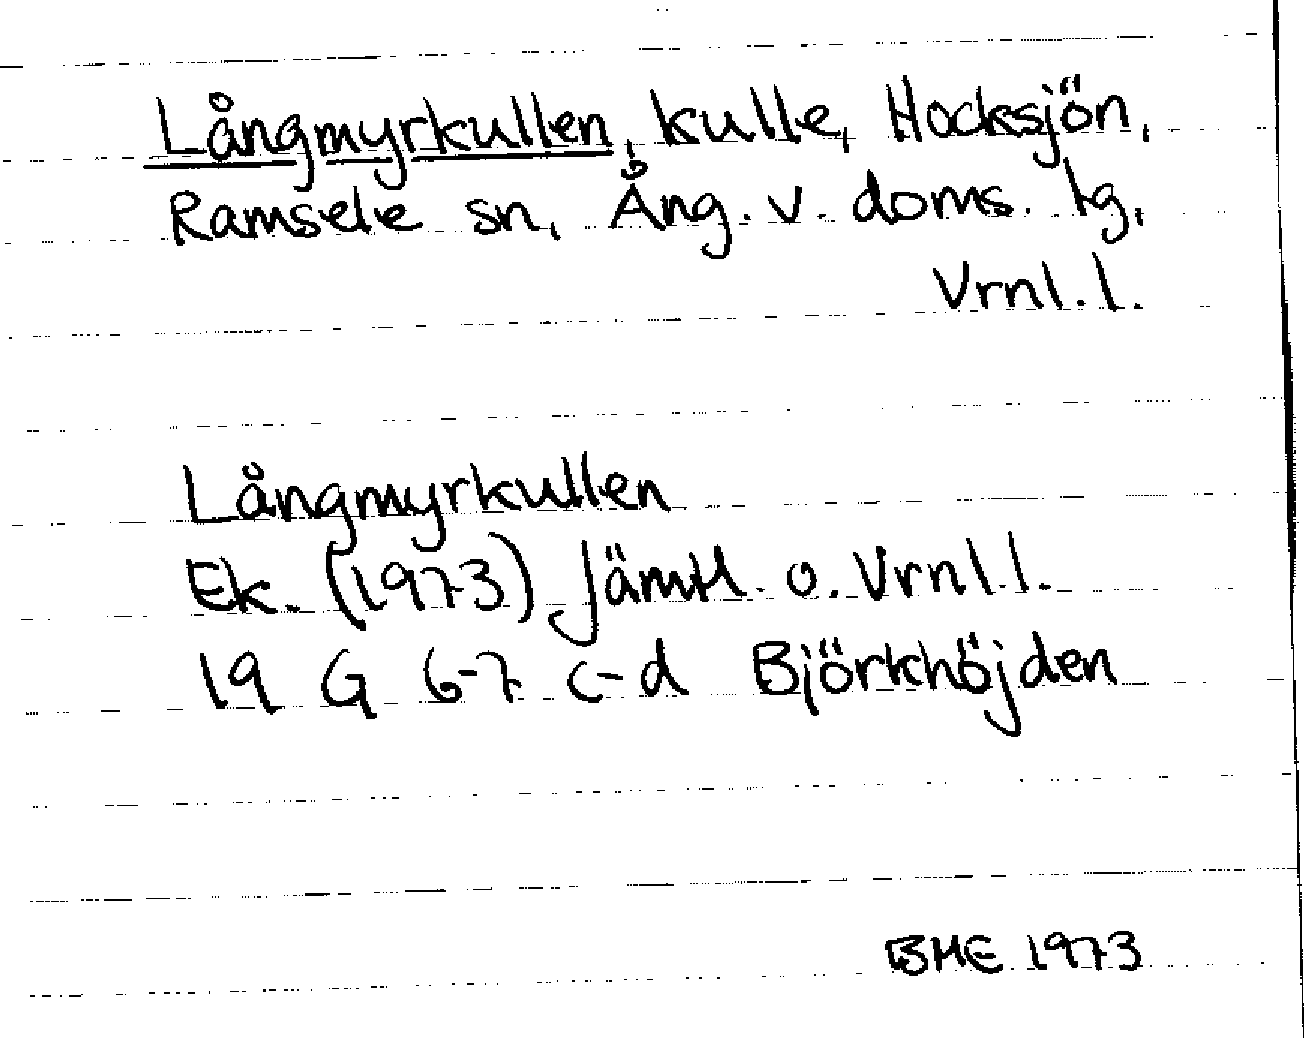 Långmyrkullen, kulle, Hocksjön,
Ramsele sn, Ång. v. doms. tg,
Vrnl. l.
Långmyrkullen
Ek. (1973) Jämtl. o. Vrnl. l.
19 G 6-7 c-d Björkhöjden
BME 1973